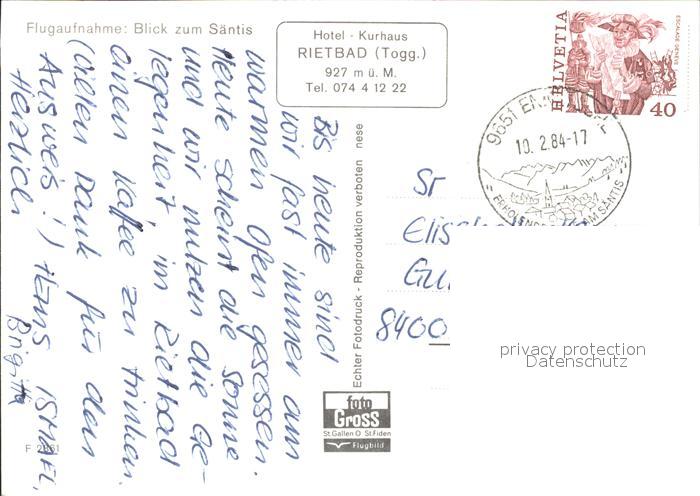 Flugaufnahme: Blick zum Säntis
Hotel - Kurhaus
RIETBAD (Togg.)
927 m ü. M.
Tel. 074 4 12 22
HELVETIA
ESCALADE GENÈVE
40
9651 EN
10.2.84-17
AM SÄNTIS
Bis heute sind
wir fast immer am
warmen Ofen gesessen.
Heute scheint die Sonne
und wir nutzen die Ge-
legenheit im Rietbad
einen Kaffee zu trinken.
(Vielen Dank für den
Ausweis!) Hans ISMAEL,
Herzlich
Brigitta
Echter Fotodruck - Reproduktion verboten
nese
Sr
Elis
Gu
8400
privacy protection
Datenschutz
foto
Gross
St.Gallen O St.Fiden
Flugbild
F 2861